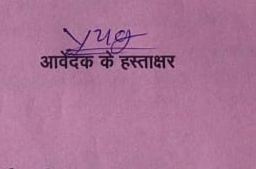 yug
आवेदक के हस्ताक्षर